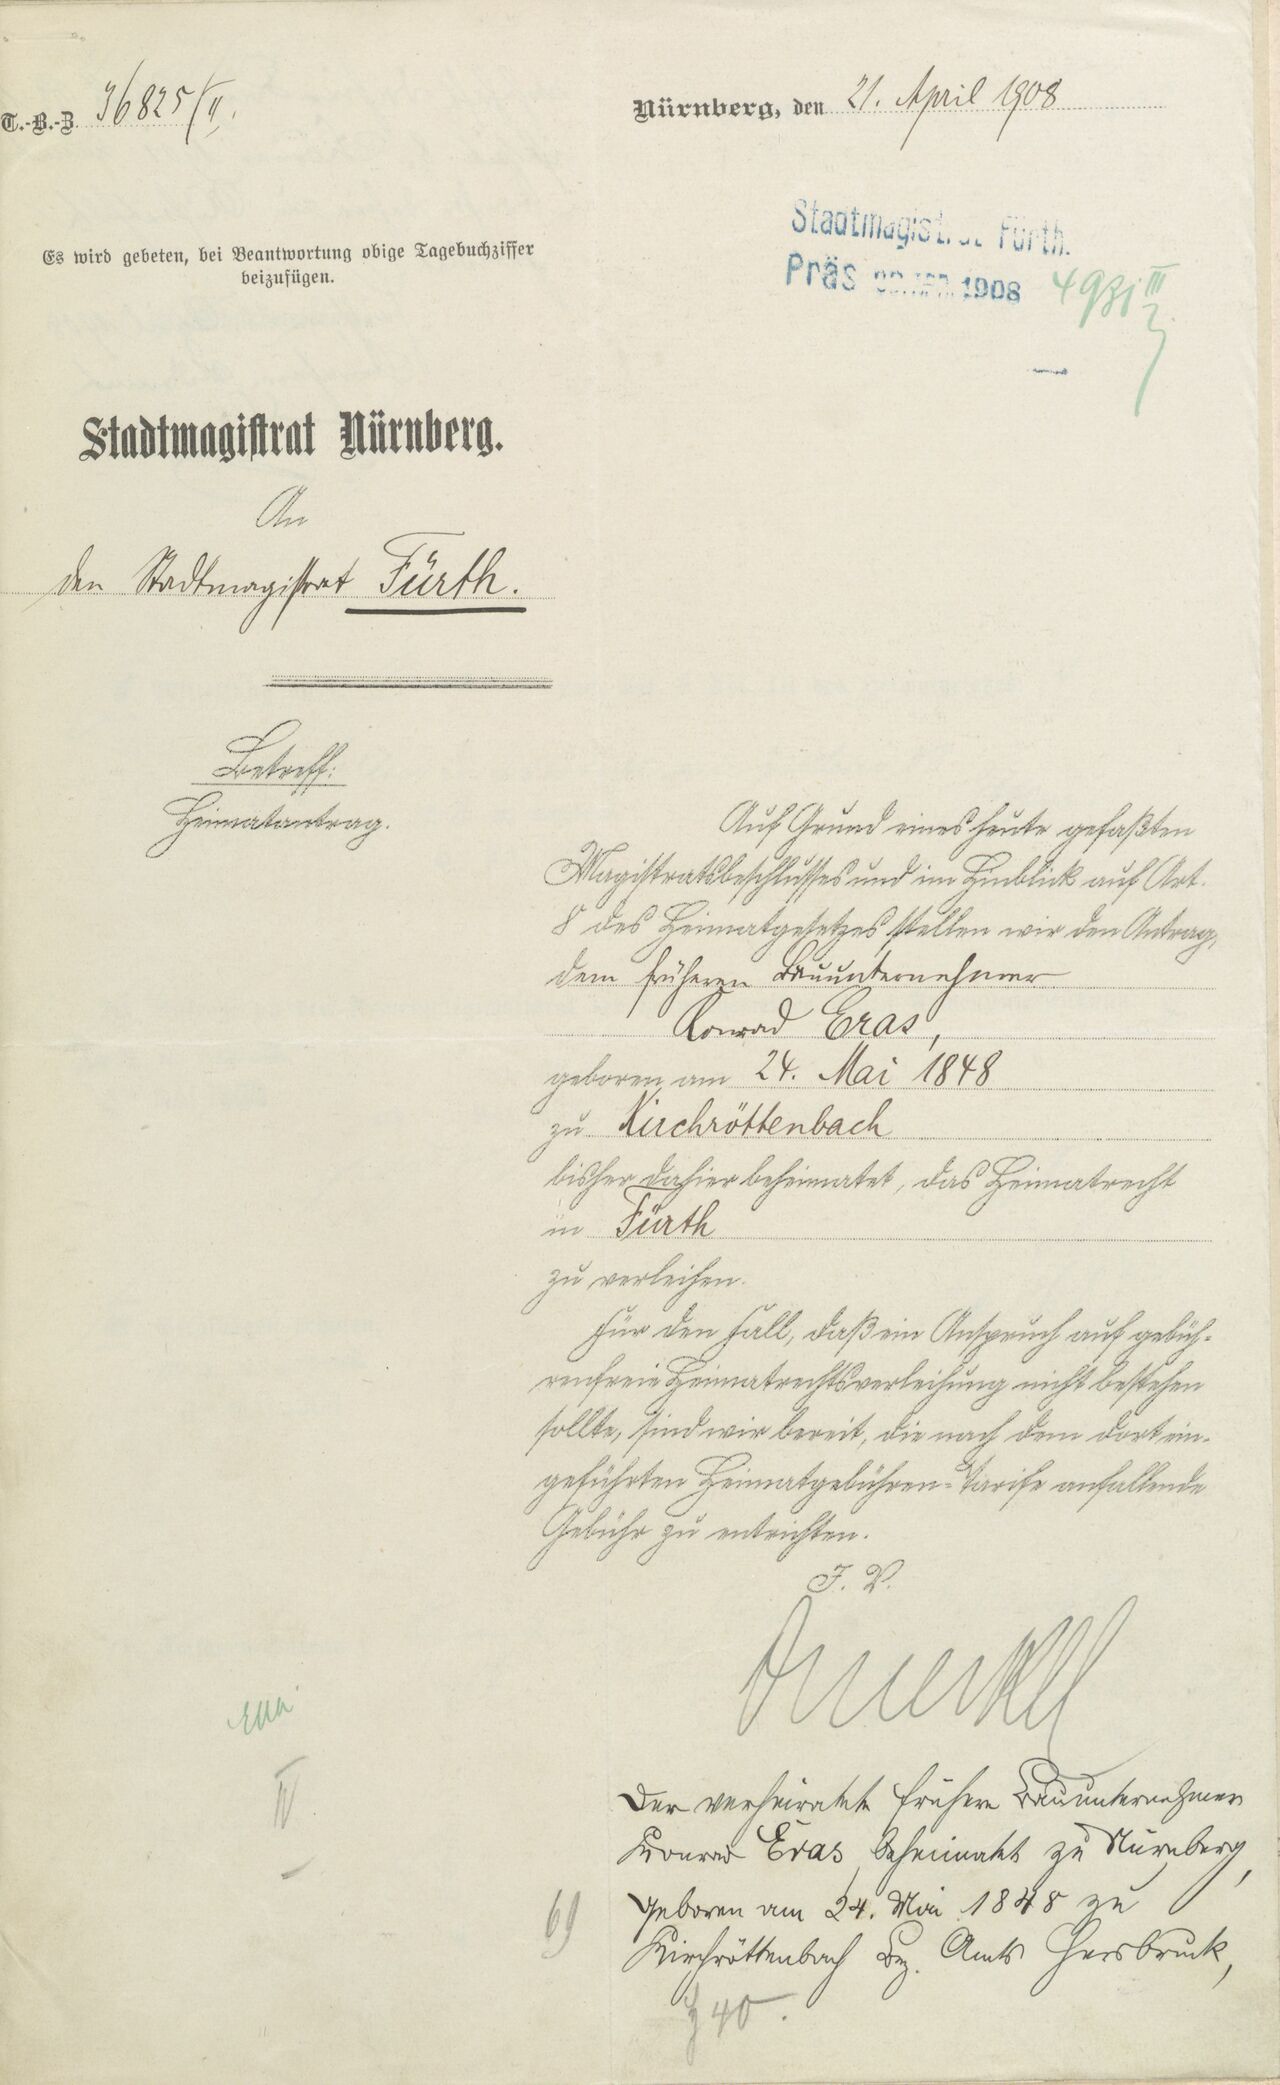 T.-B.-Z. 36825/II.
Nürnberg, den 21. April 1908
Es wird gebeten, bei Beantwortung obige Tagebuchziffer
beizufügen.
Stadtmagistrat Fürth.
Präs 1908
Stadtmagistrat Nürnberg.
An
den Stadtmagistrat Fürth.
Betreff:
Heimatantrag.
Auf Grund eines heute gefaßten
Magistratsbeschlusses und im Hinblick auf Art.
8 des Heimatgesetzes stellen wir den Antrag,
dem früheren Bauunternehmer
Konrad Eras,
geboren am 24. Mai 1848
zu Kirchröttenbach
bisher dahier beheimatet, das Heimatrecht
in Fürth
zu verleihen.
Für den Fall, daß ein Anspruch auf gebüh-
renfreie Heimatrechtsverleihung nicht bestehen
sollte, sind wir bereit, die nach dem dort ein-
geführten Heimatgebühren-Tarife anfallende
Gebühr zu entrichten.
J. V.
IV
Der verheiratete frühere Bauunternehmer
Konrad Eras, beheimatet zu Nürnberg,
geboren am 24. Mai 1848 zu
69
Kirchröttenbach Bez. Amts Hersbruck,
40.